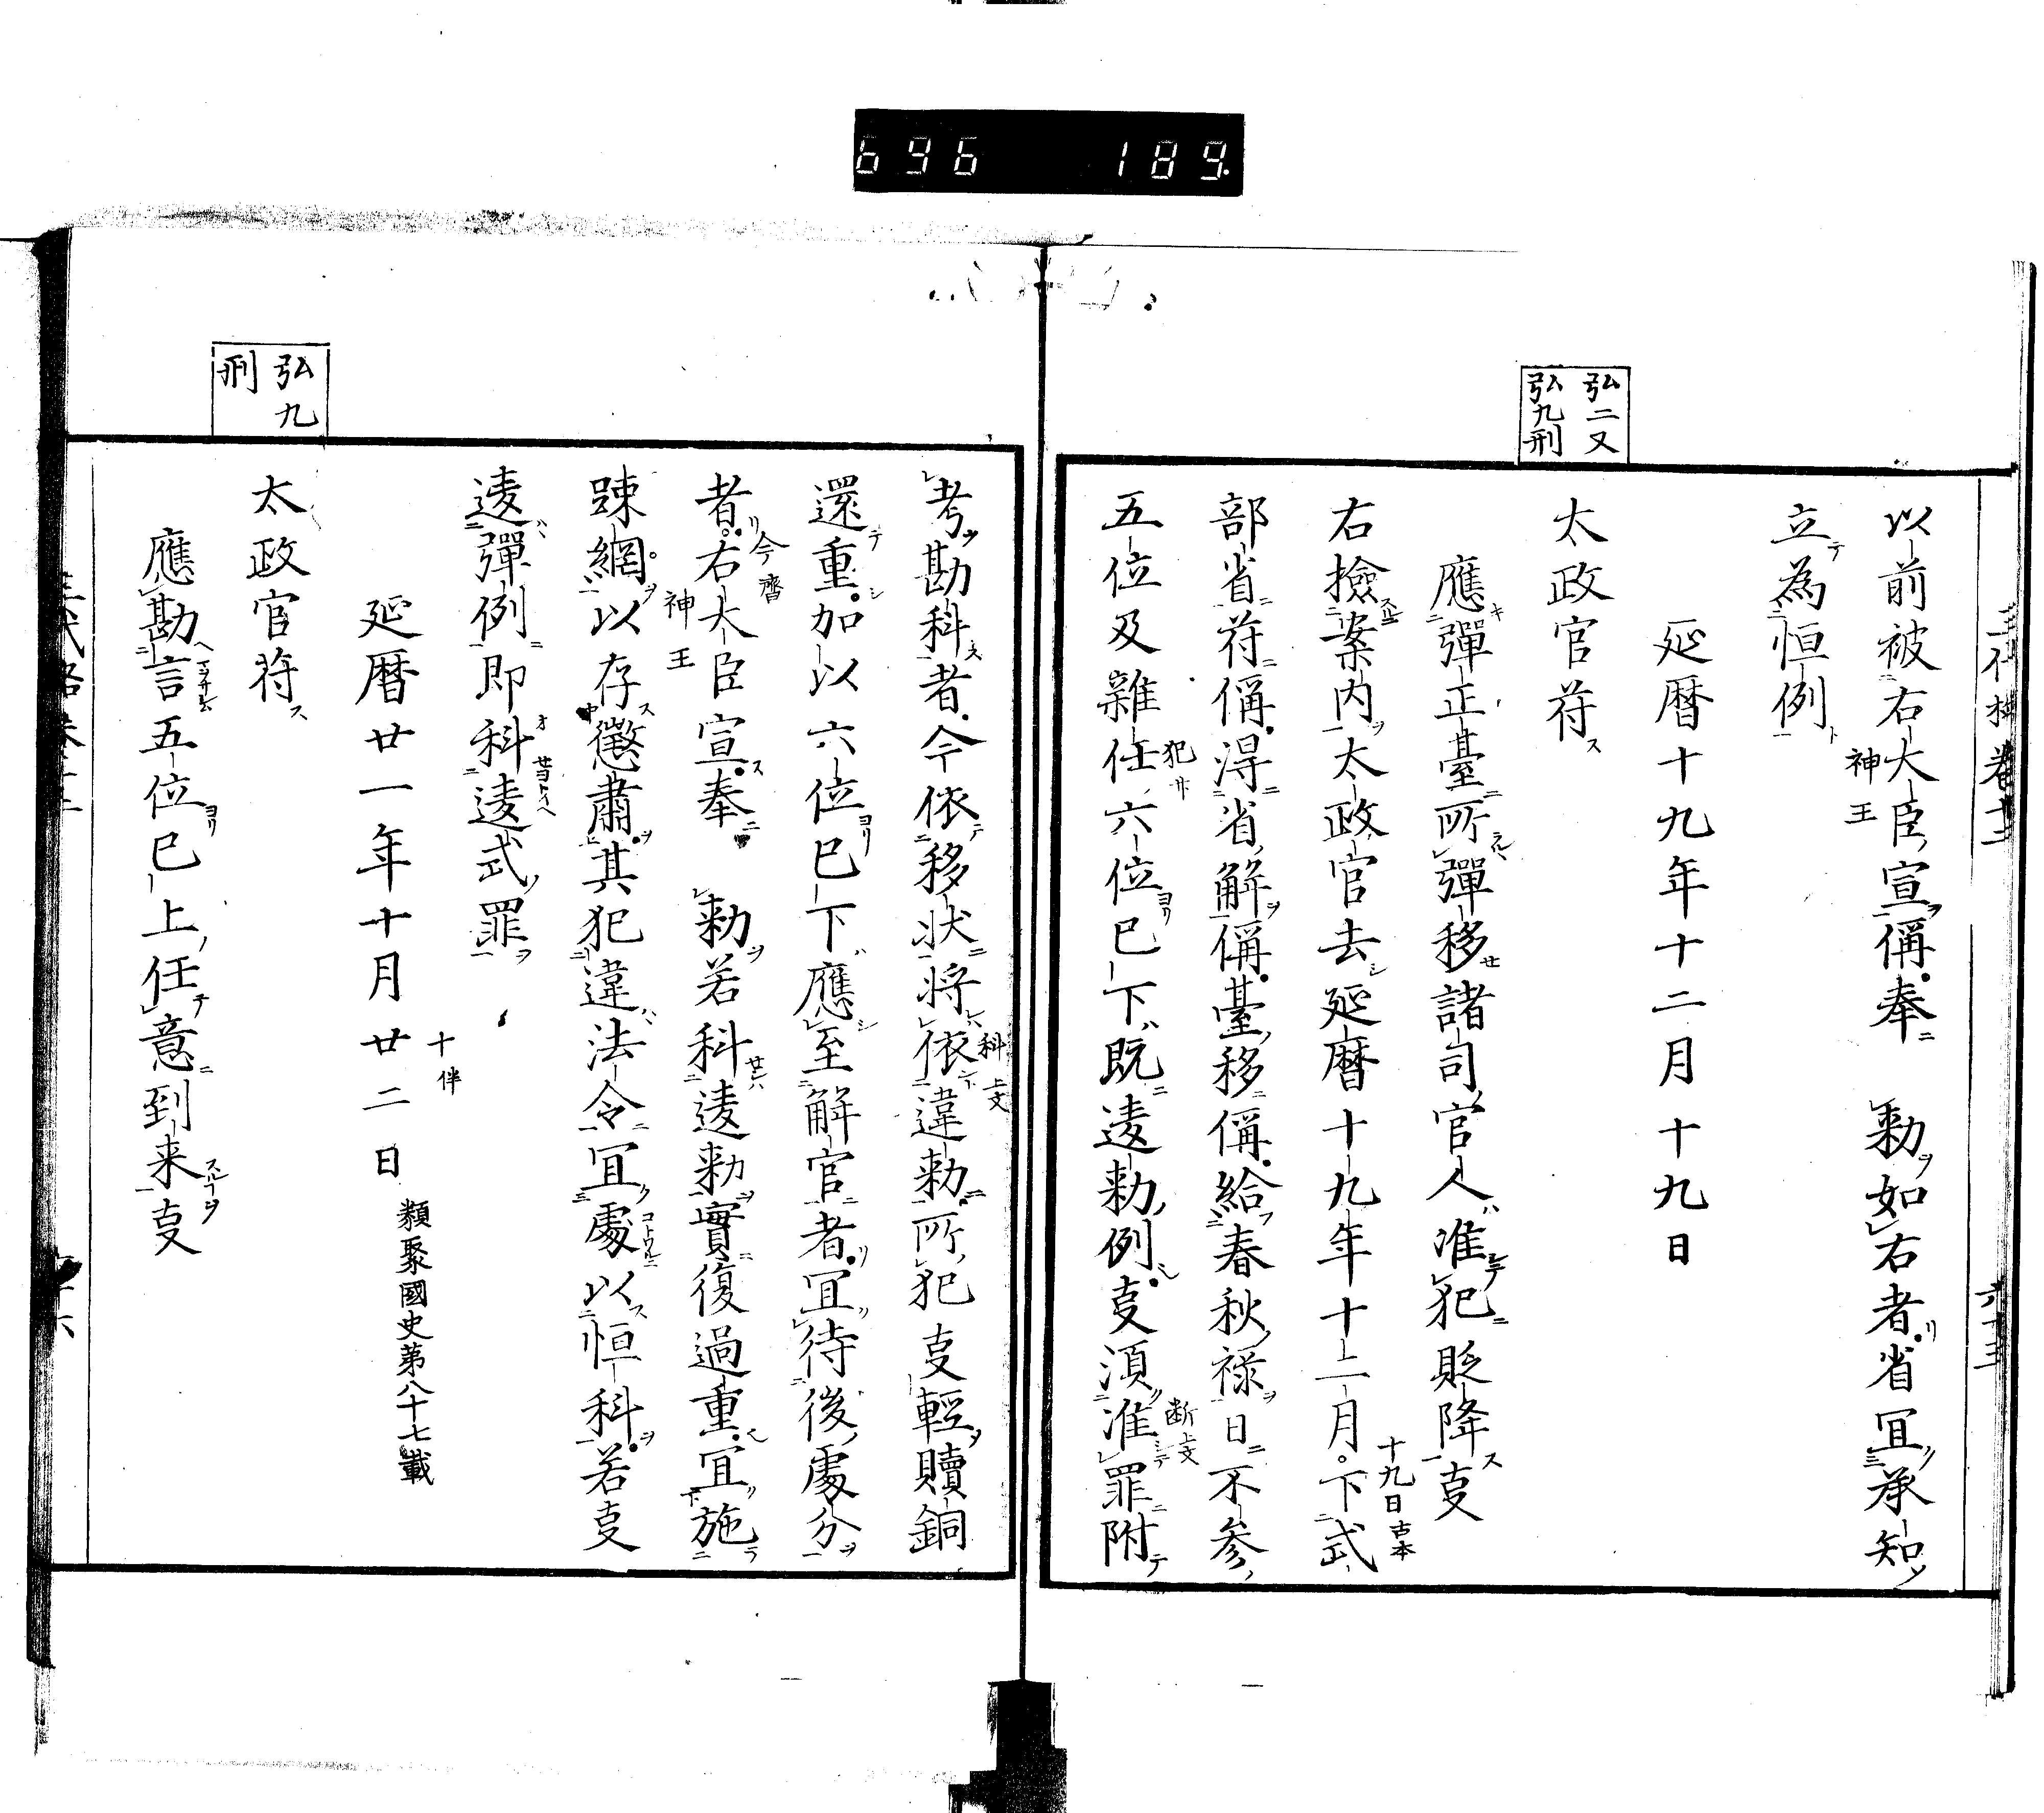 696 189
弘二又
弘九刑
以前被右大臣宣偁奉 勅如右者省宜承知
神王
立為恒例
延暦十九年十二月十九日
太政官符
應彈正臺所彈移諸司官人准犯貶降叓
右撿案内太政官去延暦十九年十二月下式
十九日古本
部省符偁得省解偁臺移偁給春秋祿日不参
五位及雜任六位已下既違勅例叓須准罪附
犯
断上文
弘九
刑
考勘科者今依移状将依違勅所犯叓輕贖銅
科上文
還重加以六位已下應至解官者宜待後處分
者右大臣宣奉 勅若科違勅實復過重宜施
今齊
神王
踈網以存懲肅其犯違法令宜處以恒科若叓
違彈例即科違式罪
延暦廿一年十月廿二日
十伴
類聚國史第八十七載
太政官符
應勘言五位已上任意到来叓